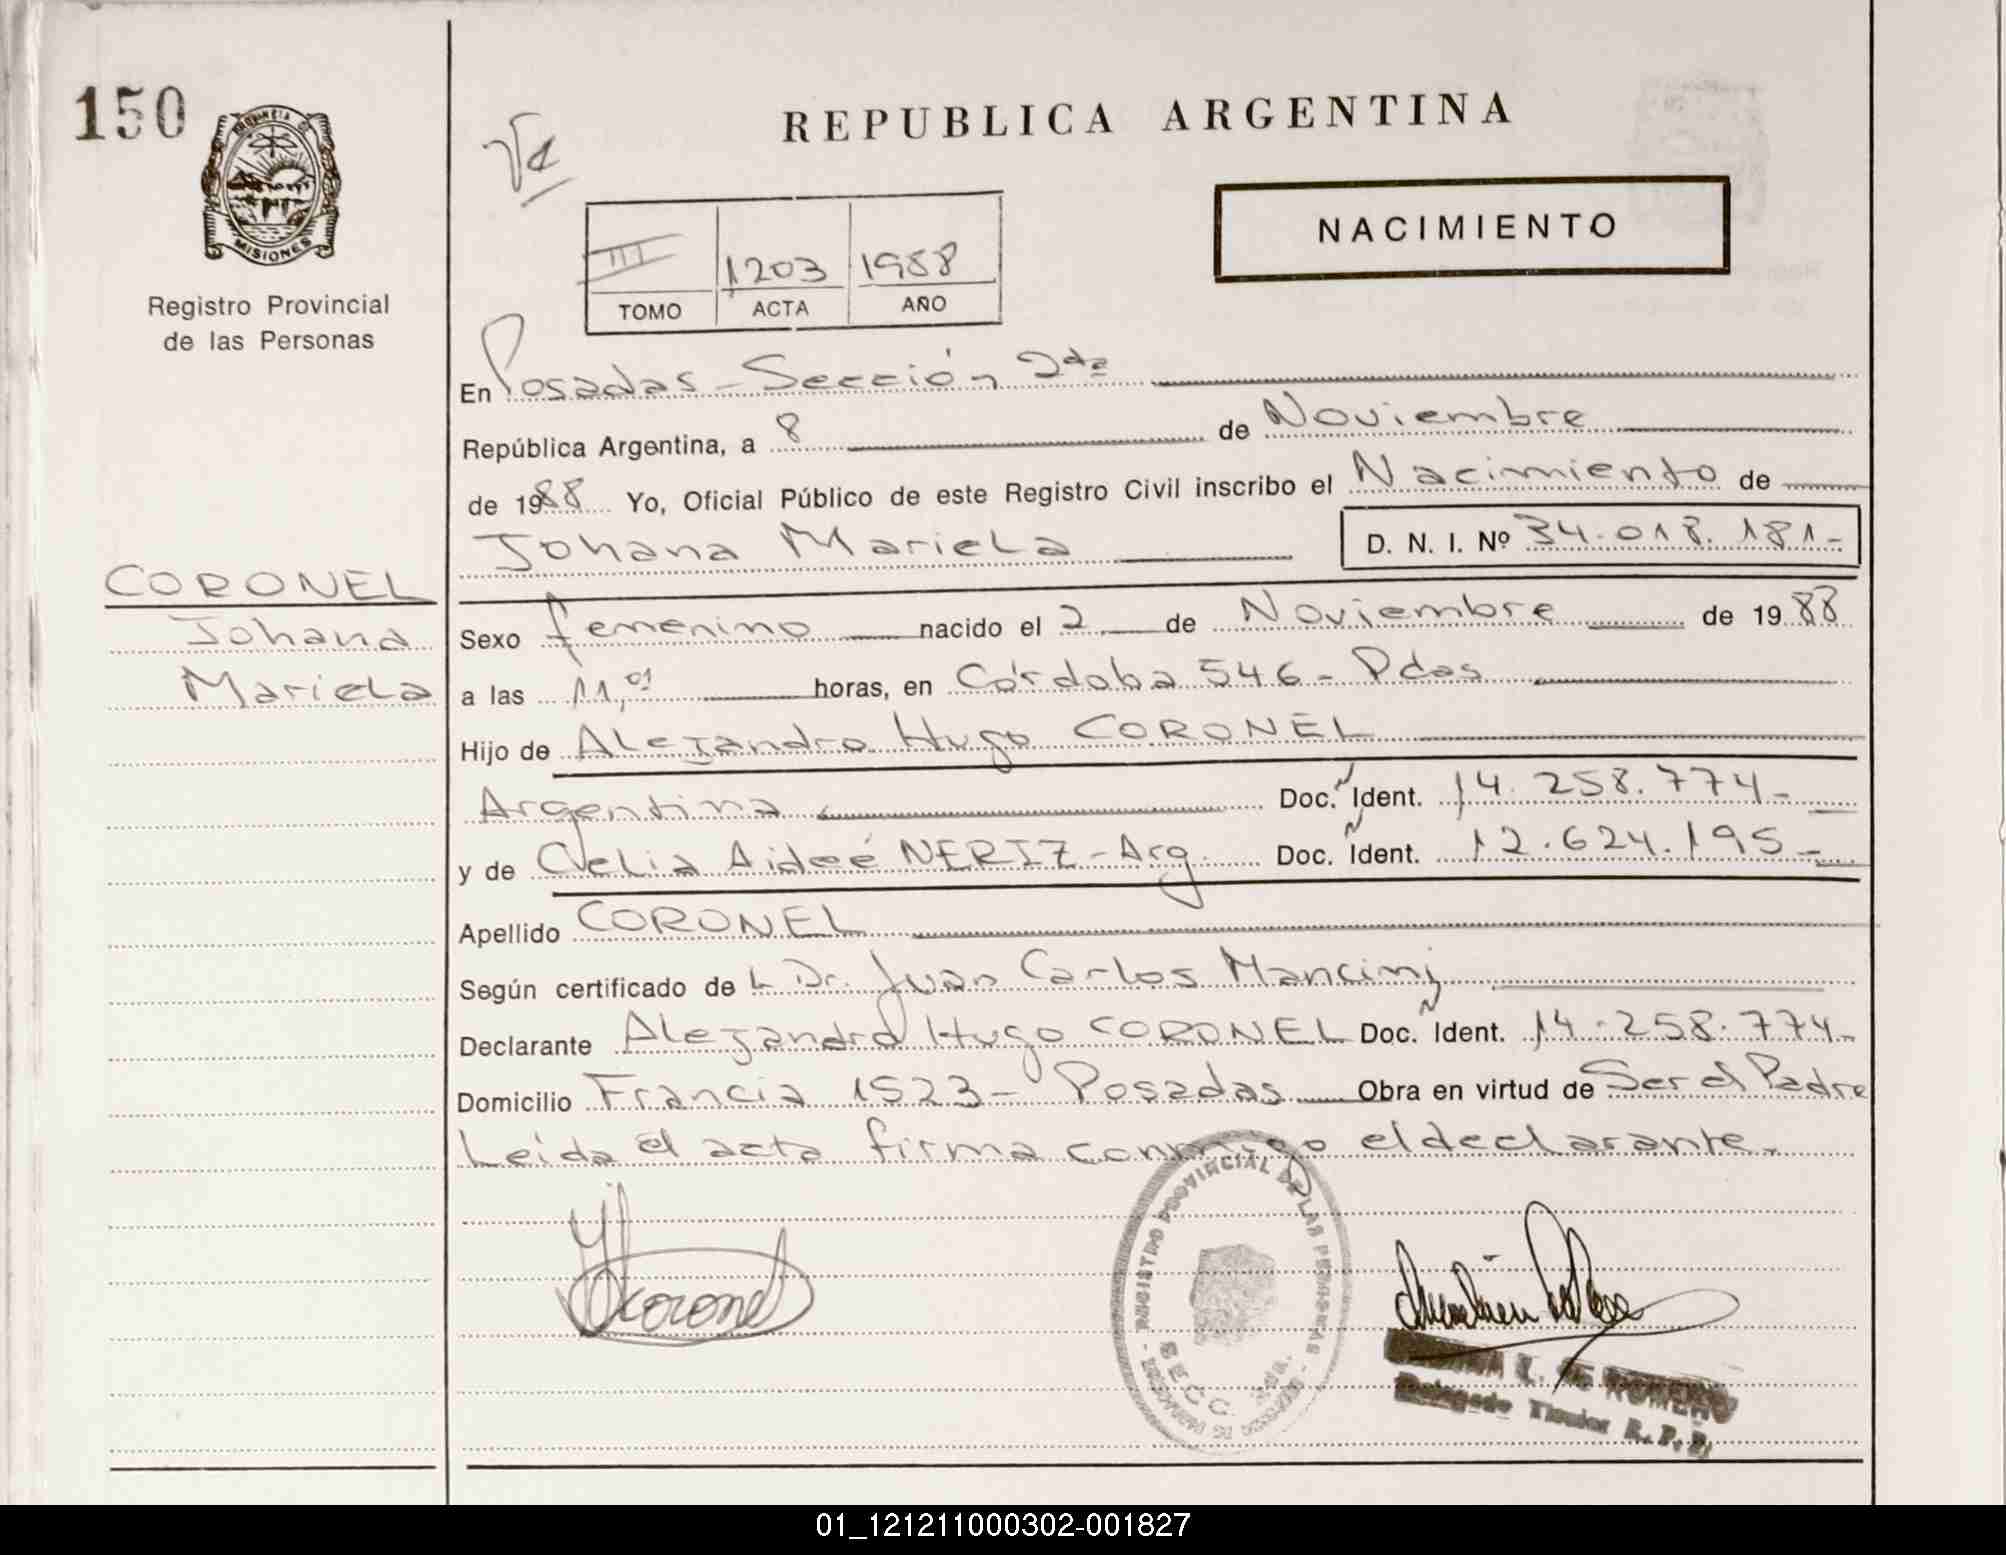 150
PROVINCIA DE
MISIONES
Registro Provincial
de las Personas
REPUBLICA ARGENTINA
NACIMIENTO
III 1203 1988
TOMO ACTA AÑO
En Posadas - Sección 2da
República Argentina, a 8 de Noviembre
de 1988 Yo, Oficial Público de este Registro Civil inscribo el Nacimiento de
Johana Mariela D. N. I. Nº 34.018.181-
CORONEL
Johana
Mariela
Sexo femenino nacido el 2 de Noviembre de 1988
a las 11,01 horas, en Córdoba 546 - Pdas
Hijo de Alejandro Hugo CORONEL
Argentina Doc. Ident. 14.258.774-
y de Celia Aideé NERIZ - Arg. Doc. Ident. 12.624.195-
Apellido CORONEL
Según certificado del Dr. Juan Carlos Mancini
Declarante Alejandro Hugo CORONEL Doc. Ident. 14.258.774-
Domicilio Francia 1523 - Posadas Obra en virtud de Ser el Padre
Leída el acta firma conmigo el declarante.
Coronel
REGISTRO PROVINCIAL DE LAS PERSONAS
SECC. 2da.
L. DE ROMERO
Delegado Titular R. P. P.
01_121211000302-001827